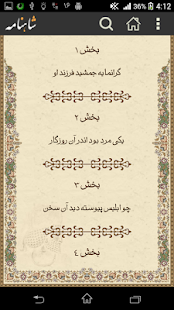 4:12
شاهنامه
بخش ۱
گرانمایه جمشید فرزند او
بخش ۲
یکی مرد بود اندر آن روزگار
بخش ۳
چو ابلیس پیوسته دید آن سخن
بخش ۴